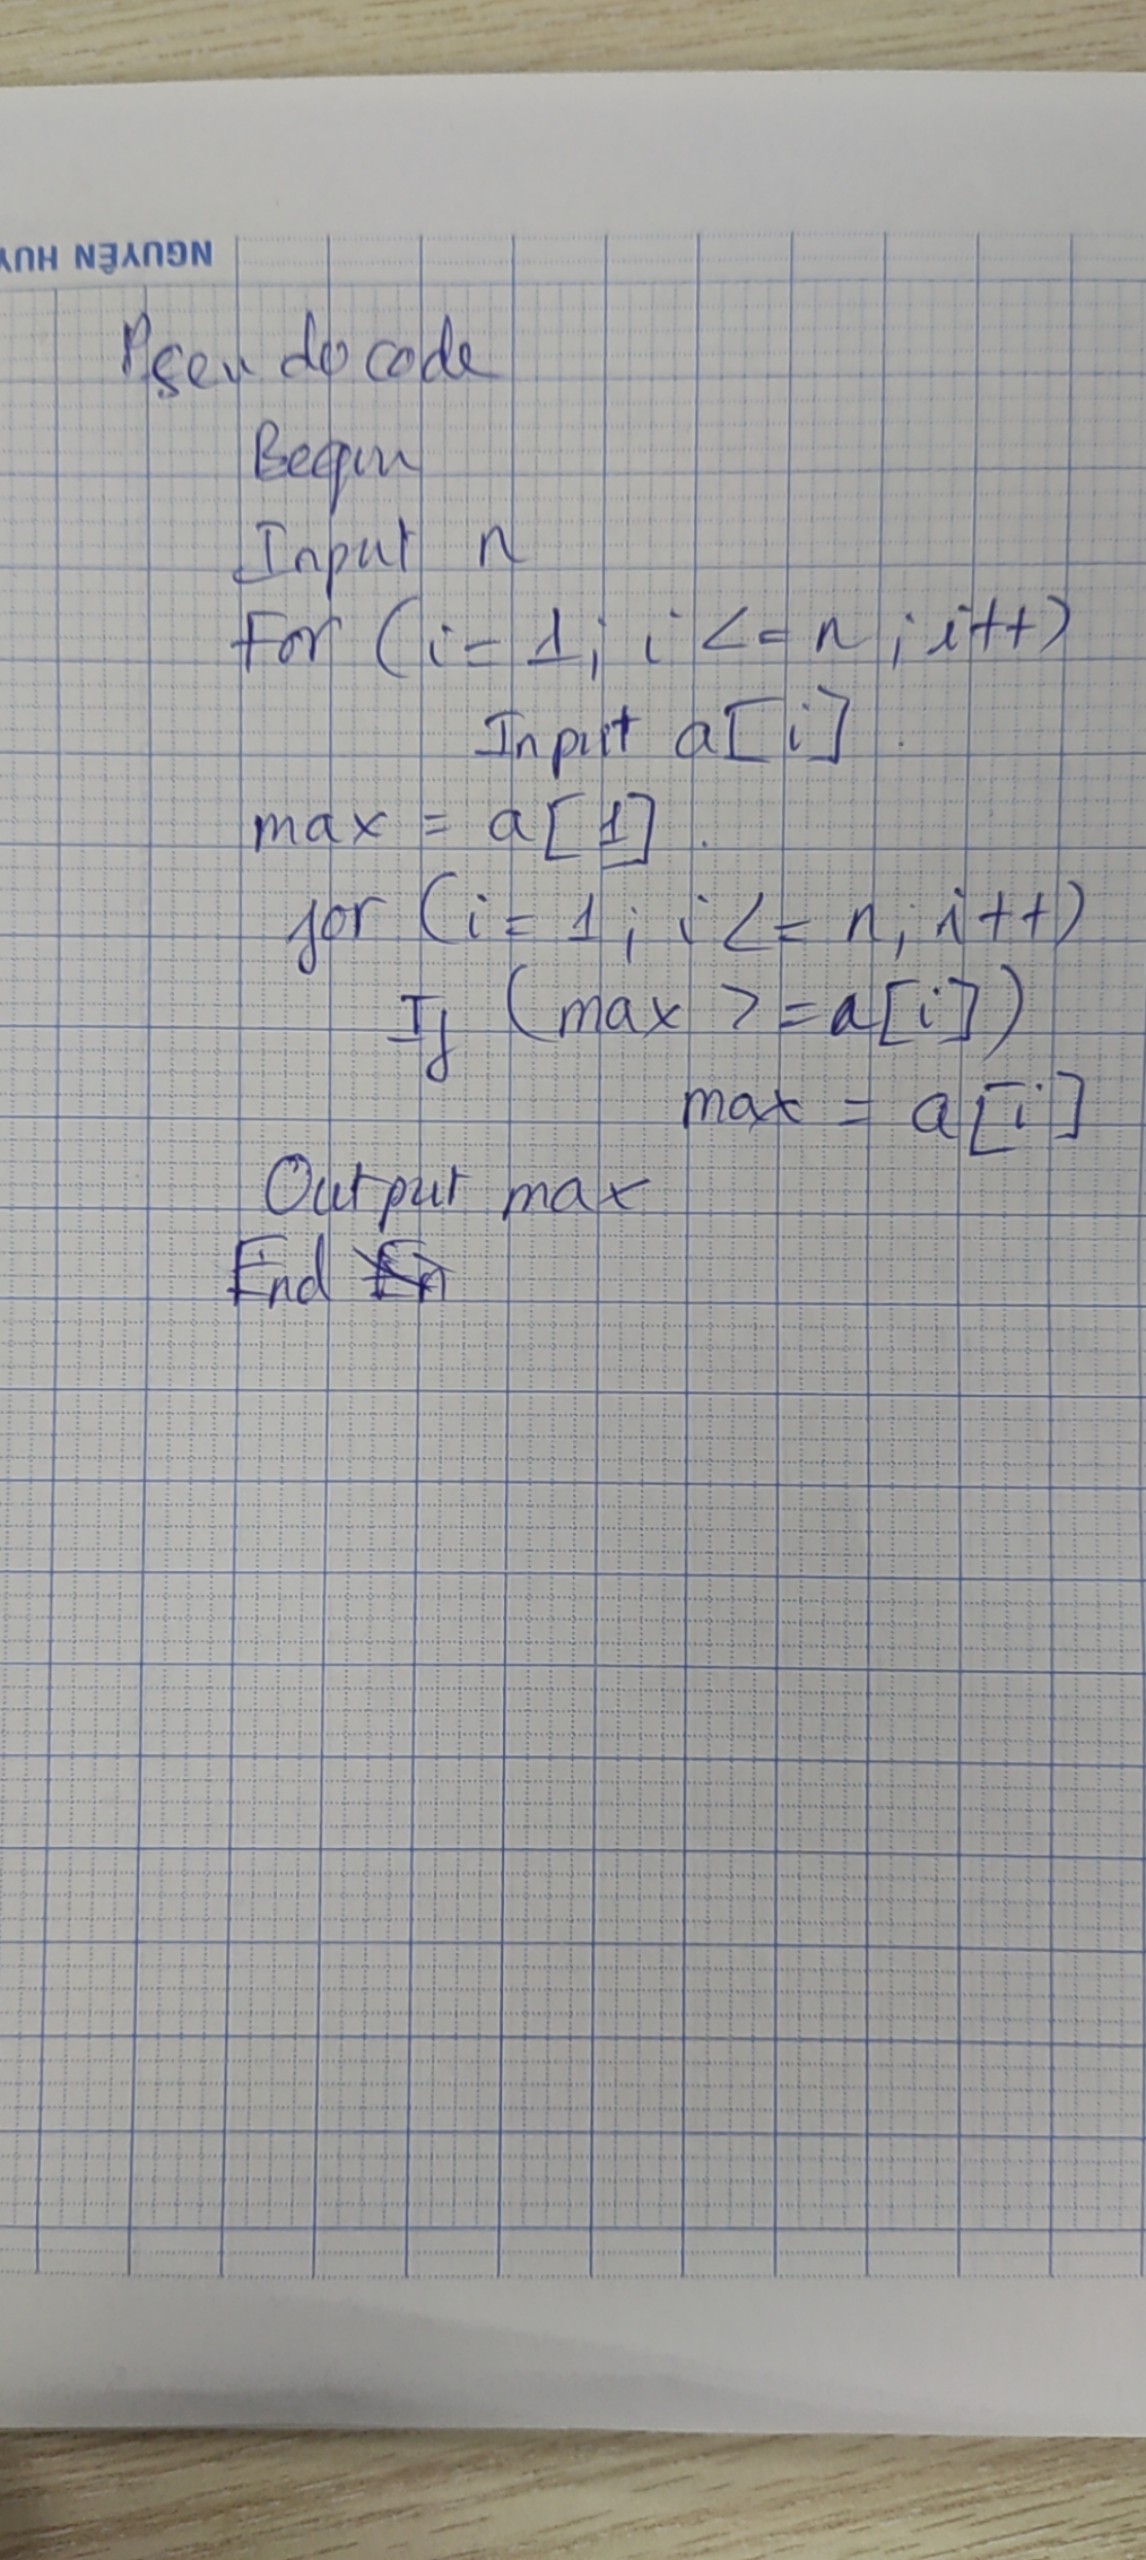 NGUYÊN HUY
Pseudocode
Begin
Input n
For (i=1; i <= n; i++)
Input a[i]
max = a[1].
for (i=1; i <= n; i++)
If (max >= a[i])
max = a[i]
Output max
End